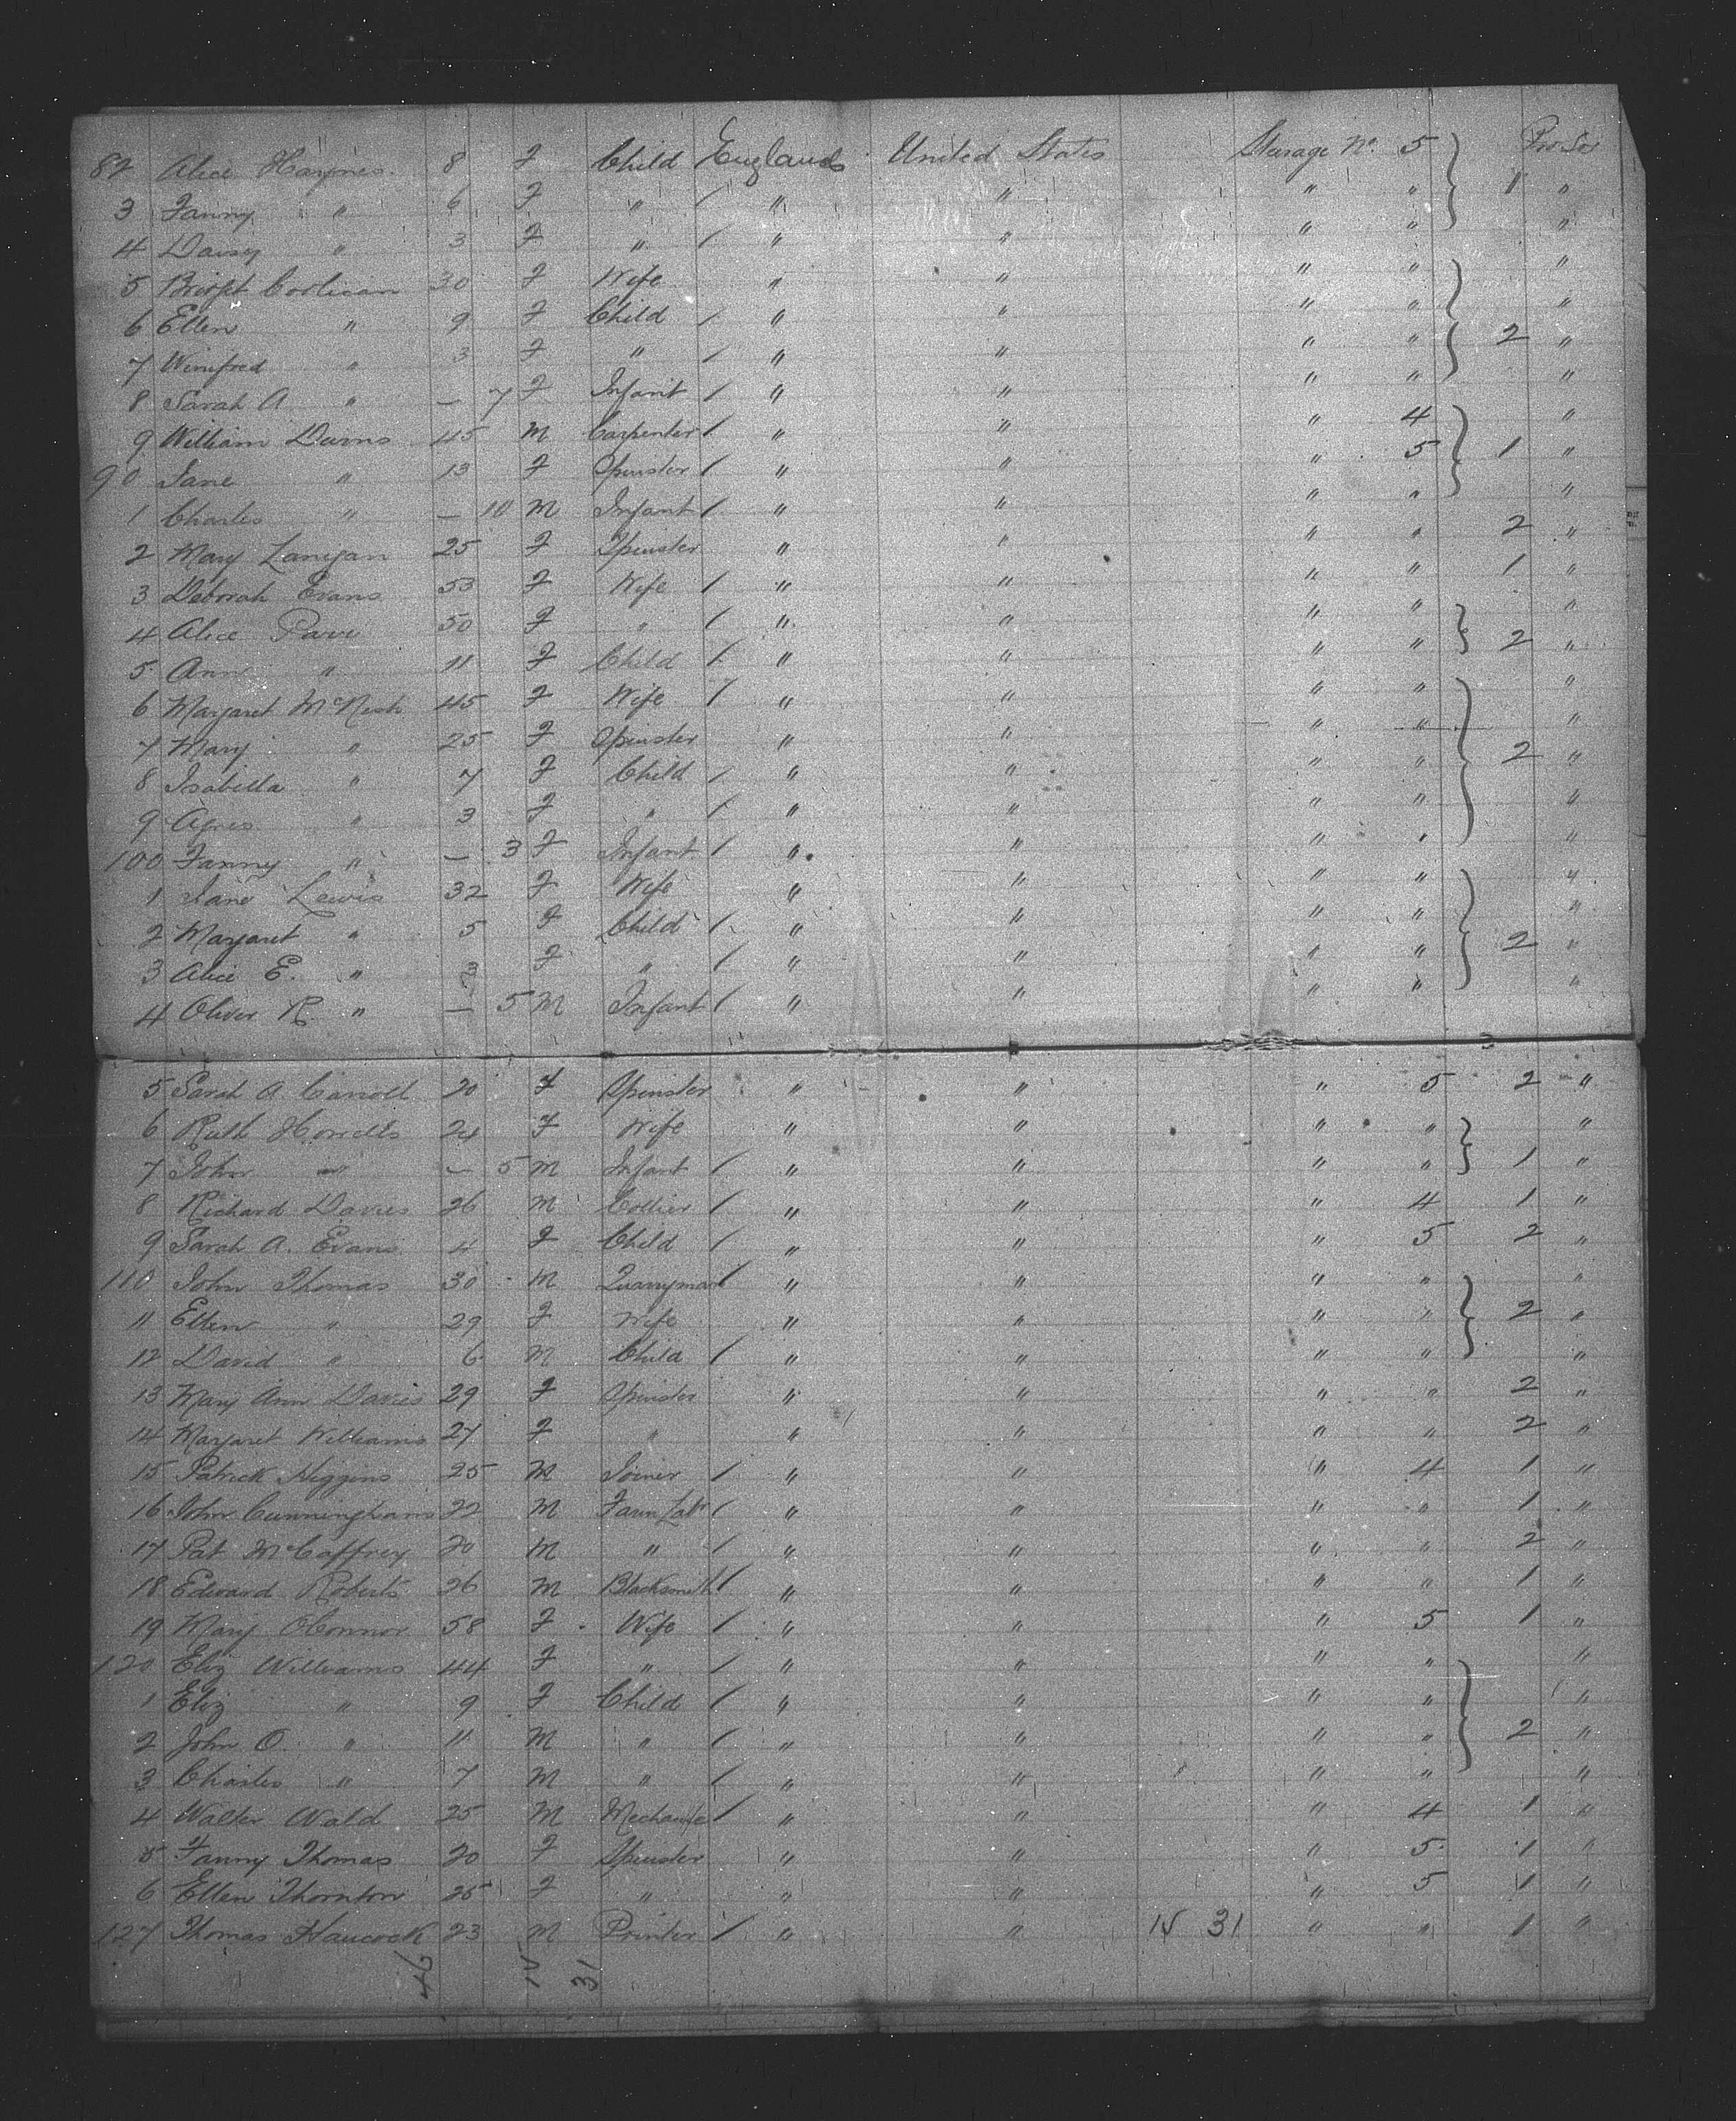 82 Alice Haynes. 8 F Child England United States Steerage No. 5 } Pro So
3 Fanny " 6 F " / " " " " 1 "
4 Daisy " 3 F " / " " " " "
5 Bridgt 30 F Wife " " " " } "
6 Ellen " 9 F Child / " " " " "
7 Winifred " 3 F " / " " " " 2 "
8 Sarah A " — 7 F Infant / " " " " "
9 William Durns 45 M Carpenter / " " " 4 } "
90 Jane " 13 F Spinster / " " " 5 1 "
1 Charles " — 10 M Infant / " " " " "
2 Mary Lanigan 25 F Spinster " " " " 2 "
3 Deborah Evans 53 F Wife / " " " " 1 "
4 Alice 50 F " / " " " " } "
5 Ann " 11 F Child / " " " " 2 "
6 Margaret McNish 45 F Wife / " " " " } "
7 Mary " 25 F Spinster " " " " "
8 Isabella " 7 F Child / " " " " 2 "
9 Agnes " 3 F " / " " " " "
100 Fanny " — 3 F Infant / " " " " "
1 Jane Lewis 32 F Wife " " " " } "
2 Margaret " 5 F Child / " " " " "
3 Alice E. " 3 F " / " " " " 2 "
4 Oliver R. " — 5 M Infant / " " " " "
5 Sarah A Carroll 20 F Spinster " " " 5 2 "
6 Ruth Howells 24 F Wife " " " " } "
7 John " — 5 M Infant / " " " " 1 "
8 Richard Davies 26 M Collier / " " " 4 1 "
9 Sarah A. Evans 4 F Child / " " " 5 2 "
110 John Thomas 30 M Quarryman / " " " " } "
11 Ellen " 29 F Wife " " " " 2 "
12 David " 6 M Child / " " " " "
13 Mary Ann Davies 29 F Spinster " " " " 2 "
14 Margaret Williams 27 F " " " " " 2 "
15 Patrick Higgins 25 M Joiner / " " " 4 1 "
16 John Cunningham 22 M Farm Labr / " " " " 1 "
17 Pat McCaffrey 20 M " / " " " " 2 "
18 Edward Roberts 26 M Blacksmith / " " " " 1 "
19 Mary OConnor 58 F Wife / " " " 5 1 "
120 Eliz Williams 44 F " / " " " " } "
1 Eliz " 9 F Child / " " " " "
2 John O. " 11 M " / " " " " 2 "
3 Charles " 7 M " / " " " " "
4 Walter Wald 25 M Mechanic / " " " 4 1 "
5 Fanny Thomas 20 F Spinster " " " 5 1 "
6 Ellen Thornton 25 F " " " " 5 1 "
127 Thomas Hancock 23 M Printer / " " 15 31 " " 1 "
46 15 31